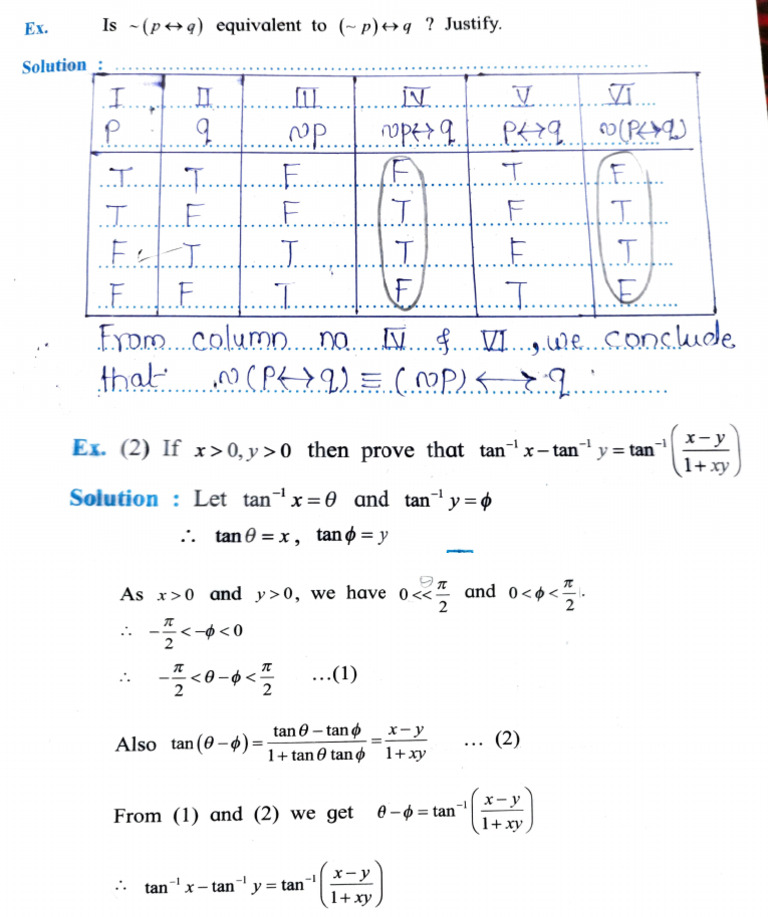 Ex. Is ~(p↔q) equivalent to (~p)↔q ? Justify.
Solution :
I II III IV V VI
p q ~p ~p↔q p↔q ~(p↔q)
T T F F T F
T F F T F T
F T T T F T
F F T F T F
From column no IV & VI, we conclude
that ~(p↔q) ≡ (~p) ↔ q
Ex. (2) If x>0, y>0 then prove that tan⁻¹ x − tan⁻¹ y = tan⁻¹ ((x−y)/(1+xy))
Solution : Let tan⁻¹ x = θ and tan⁻¹ y = ϕ
∴ tan θ = x , tan ϕ = y
As x>0 and y>0, we have 0<θ<π/2 and 0<ϕ<π/2.
∴ −π/2 < −ϕ < 0
∴ −π/2 < θ−ϕ < π/2 ...(1)
Also tan(θ−ϕ) = (tan θ − tan ϕ)/(1 + tan θ tan ϕ) = (x−y)/(1+xy) ... (2)
From (1) and (2) we get θ−ϕ = tan⁻¹ ((x−y)/(1+xy))
∴ tan⁻¹ x − tan⁻¹ y = tan⁻¹ ((x−y)/(1+xy))